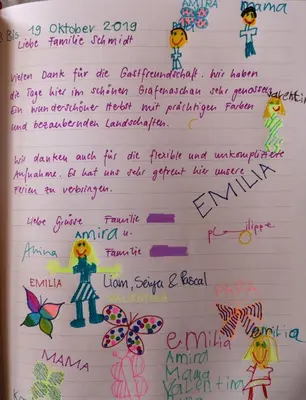 AMIRA
mama
Bis 19 Oktober 2019
Liebe Familie Schmidt
Vielen Dank für die Gastfreundschaft. Wir haben
die Tage hier im schönen Grafenaschau sehr genossen.
Ein wunderschöner Herbst mit prächtigen Farben
und bezaubernden Landschaften.
Valentina
Wir danken auch für die flexible und unkomplizierte
Aufnahme. Es hat uns sehr gefreut hier unsere
Ferien zu verbringen.
EMILIA
Liebe Grüsse Familie
Amira u.
Amina Familie
EMILIA
Liam, Seiya & Pascal
PAPA
MAMA
emilia
emilia
Amira
Mama
Valentina